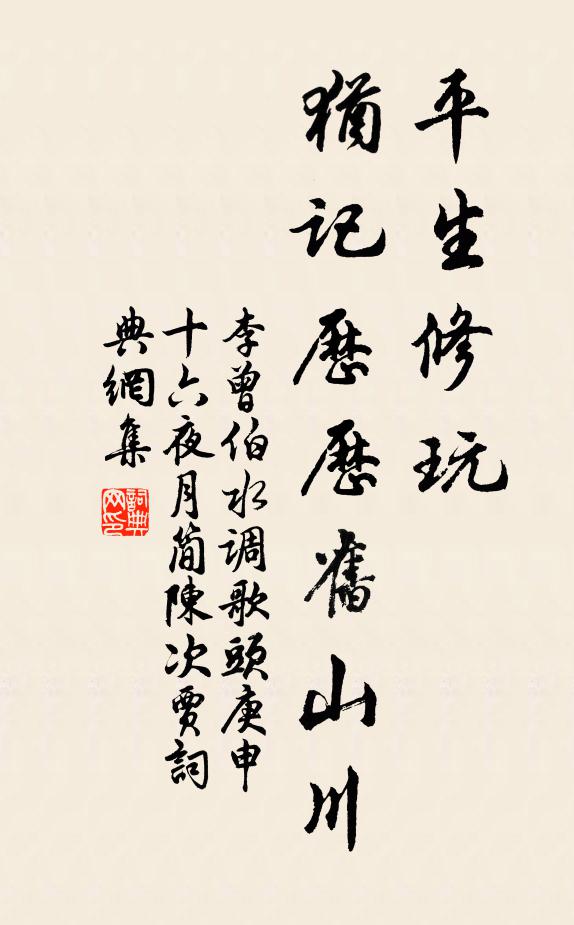 平生修玩
猶記歷歷舊山川
李曾伯水调歌頭庚申
十六夜月簡陳次賈詞
典網集
詞典网印